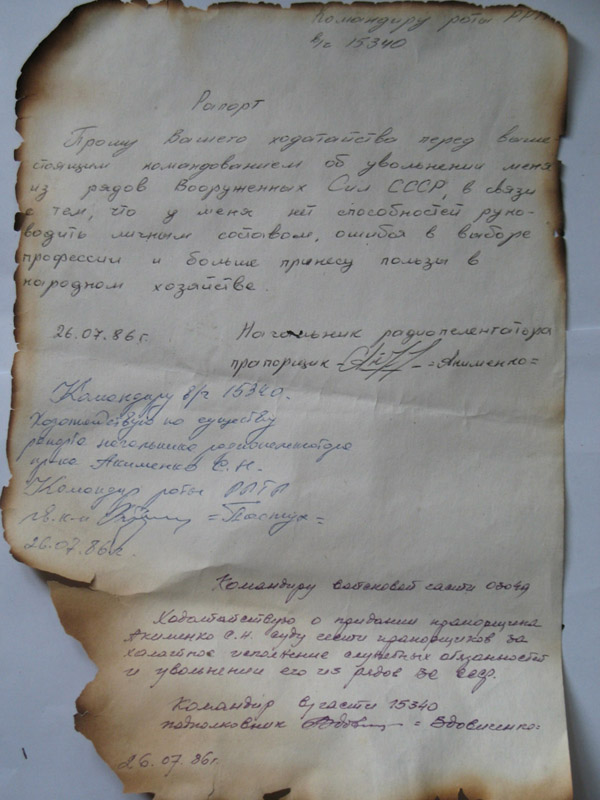 Командиру роты РРТ
в/ч 15340
Рапорт
Прошу Вашего ходатайства перед выше
стоящим командованием об увольнении меня
из рядов Вооруженных Сил СССР, в связи
с тем, что у меня нет способностей руко-
водить личным составом, ошибся в выборе
профессии и больше принесу пользы в
народном хозяйстве.
26.07.86г. Начальник радиопеленгатора
прапорщик = Акименко =
Командиру в/ч 15340.
Ходотайствую по существу
рапорта начальника радиопеленгатора
пр-ка Акименко С.Н.
Командир роты
гв. к-н = Пастух =
26.07.86г.
Командиру войсковой части
Ходотайствую о придании прапорщика
Акименко С.Н. суду чести прапорщиков за
халатное исполнение служебных обязанностей
и увольнении его из рядов ВС СССР.
Командир в/части 15340
подполковник = Вдовиченко =
26.07.86г.